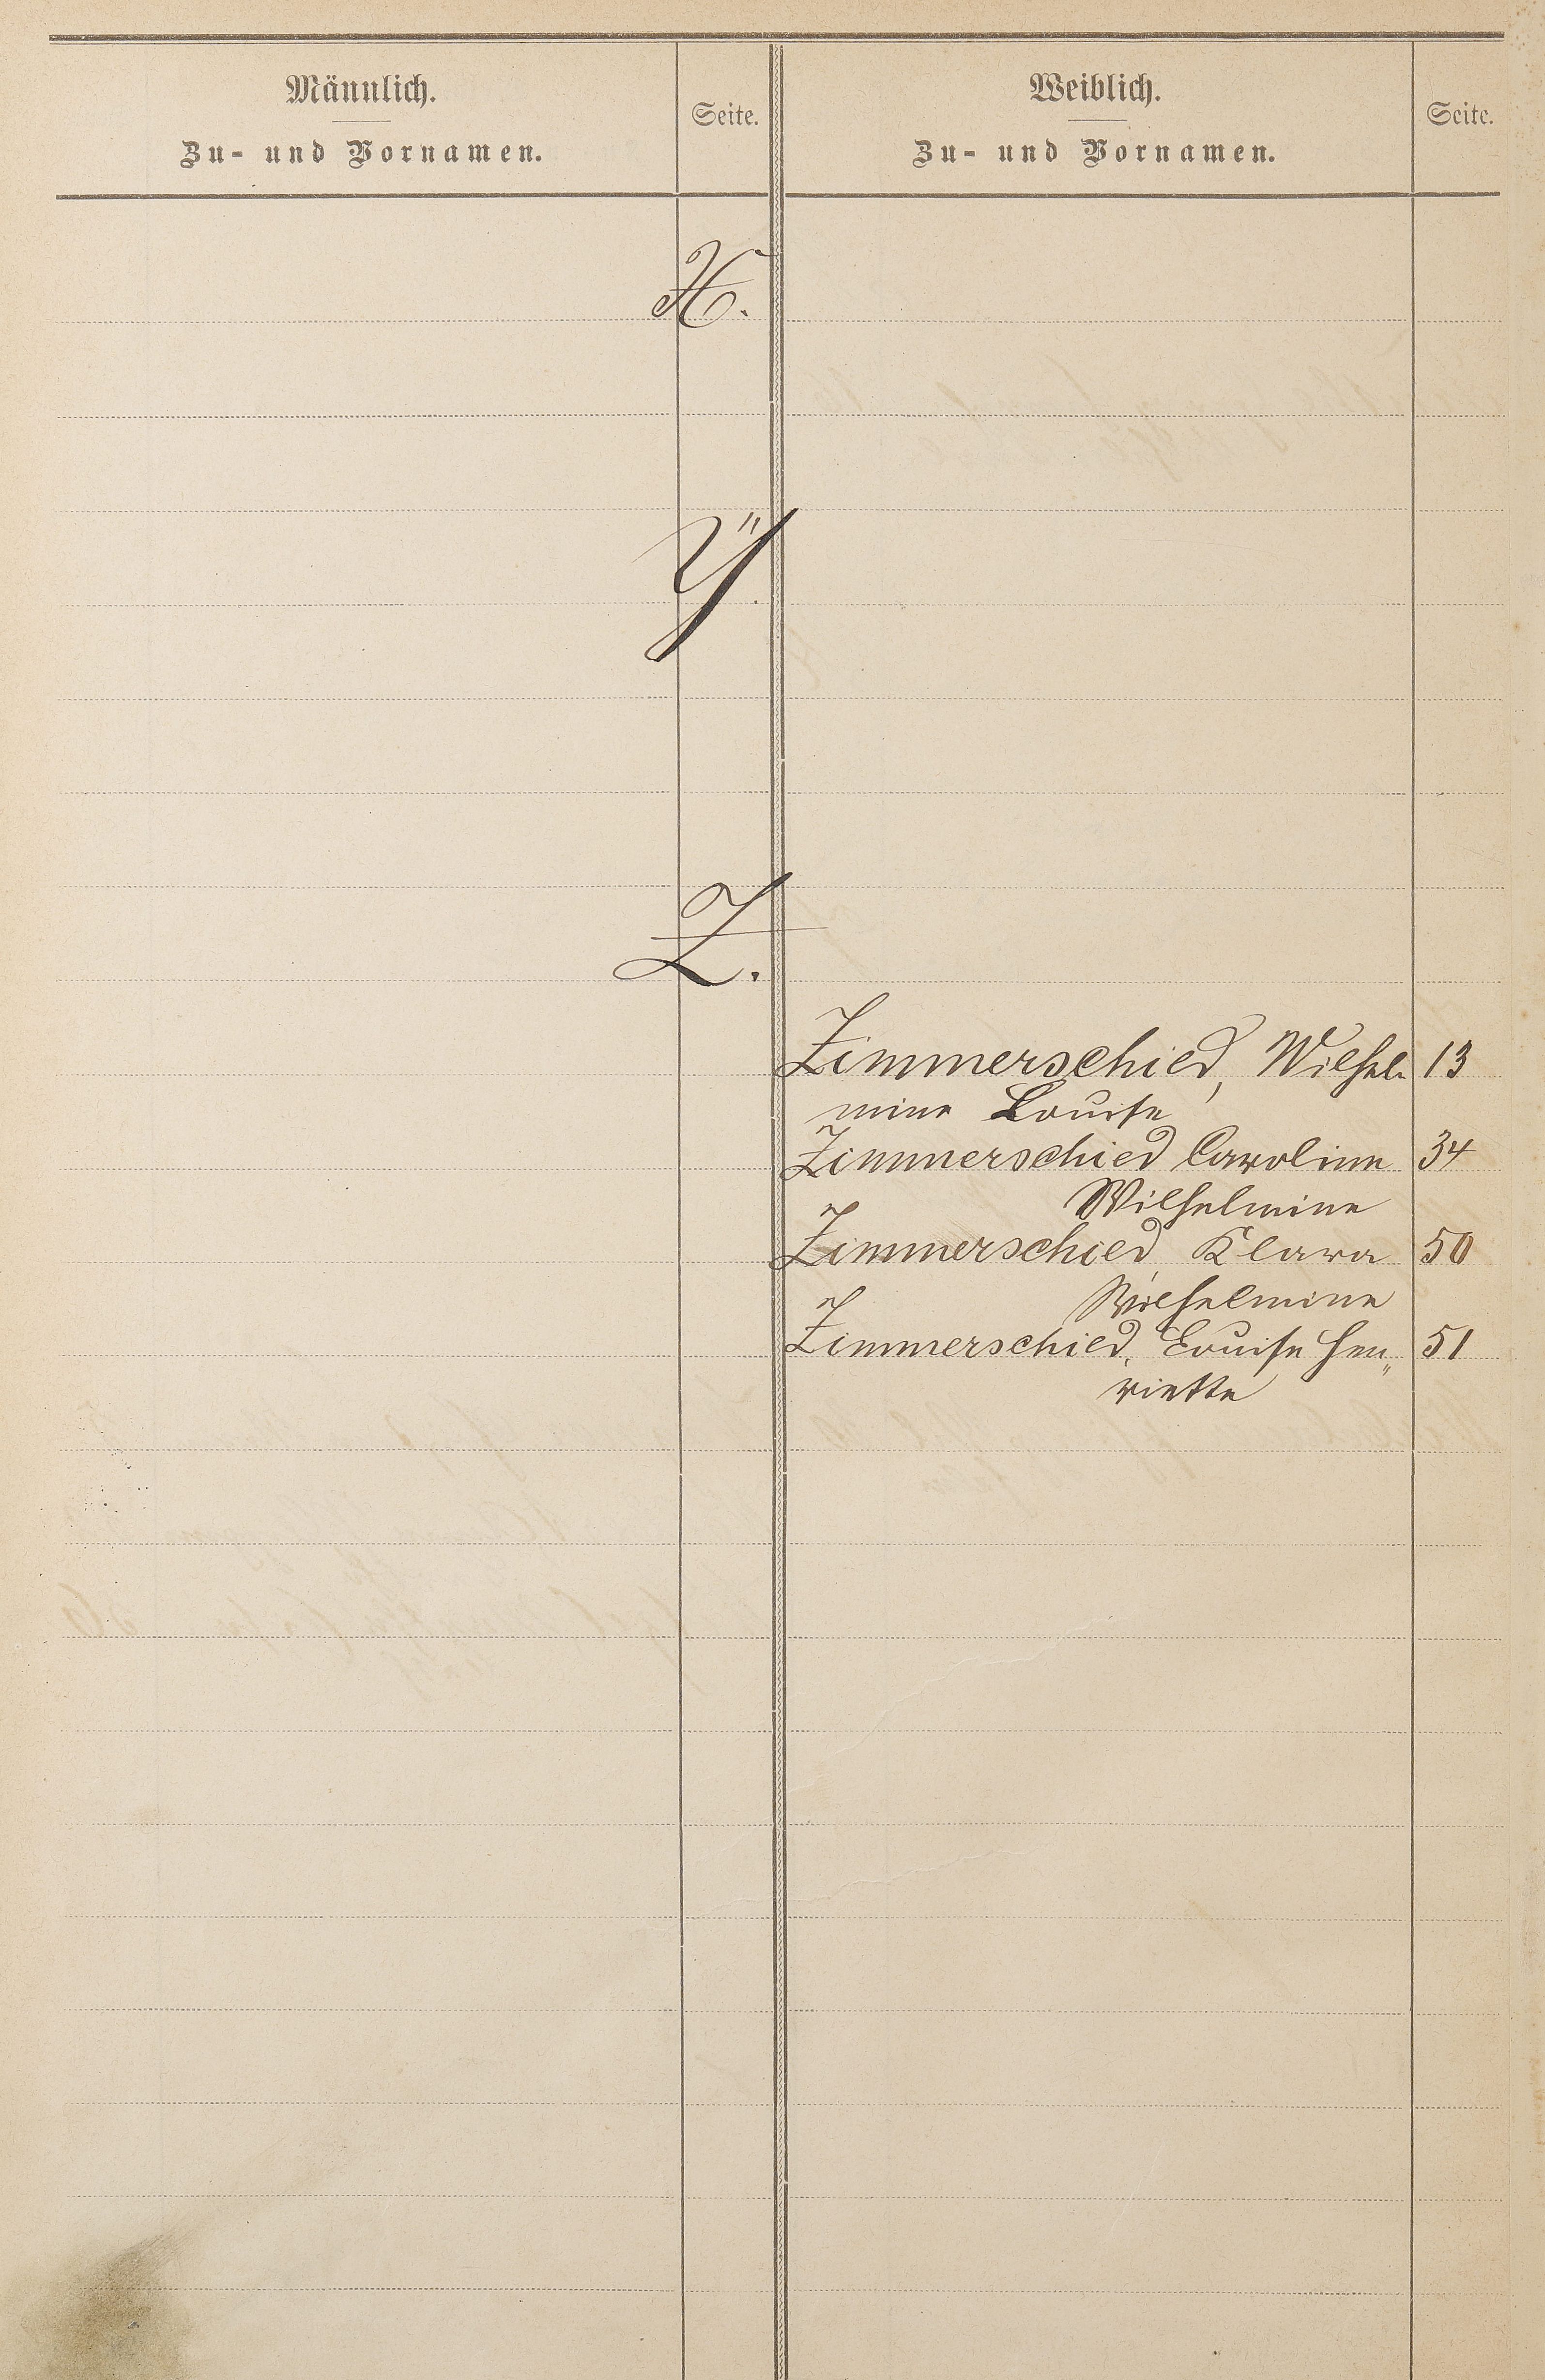 Männlich.
Zu- und Vornamen.
Seite.
Weiblich.
Zu- und Vornamen.
Seite.
X.
Ÿ.
Z.
Zimmerschied, Wilhel- 13
mine Louise
Zimmerschied Caroline 34
Wilhelmine
Zimmerschied, Klara 50
Wilhelmine
Zimmerschied, Louise Hen„ 51
riette